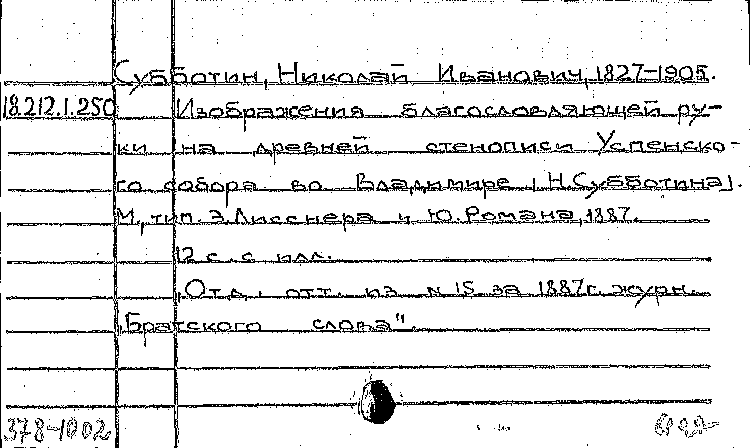 Субботин, Николай Иванович, 1827-1905.
18.212.1.250 Изображения благословляющей ру-
ки на древней стенописи Успенско-
го собора во Владимире [Н.Субботина].
М., тип. Э.Лисснера и Ю.Романа, 1887.
12 с. с илл.
Отд. отт. из N 15 за 1887г. журн.
„Братского слова".
378-1002